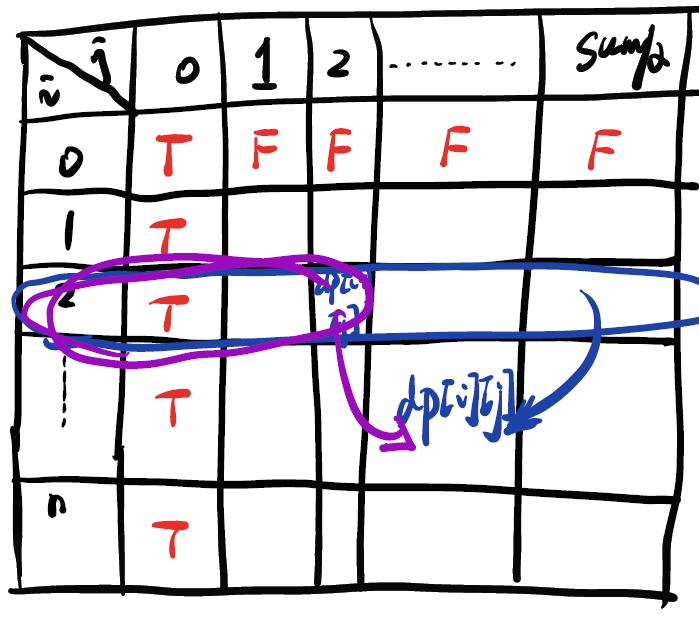 j 0 1 2 ........ Sum/2
i
0 T F F F F
1 T
2 T dp[i]
[j]
...... T dp[i][j]
n T